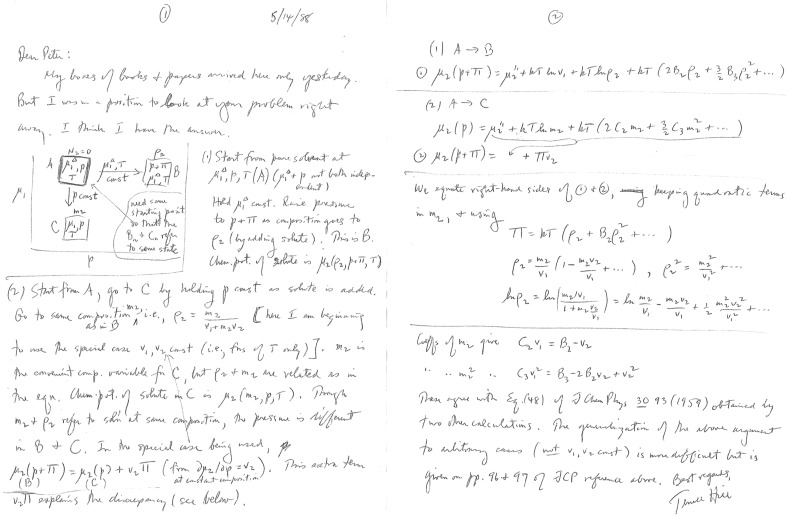 ①
5/14/88
Dear Peter:
My boxes of books & papers arrived here only yesterday.
But I was in a position to look at your problem right
away. I think I have the answer.
N₂=0
A
μ₁°, p
T
μ₁°, T
const
ρ₂
p+Π
μ₁°, T
B
↓ p const
m₂
C
μ₁, p
T
μ₁
p
need same
starting point
so that the
Bₙ & Cₙ refer
to same state
(1) Start from pure solvent at
μ₁°, p, T (A) (μ₁° & p not both indep-
endent)
Hold μ₁° const. Raise pressure
to p+Π as composition goes to
ρ₂ (by adding solute). This is B.
Chem. pot. of solute is μ₂(ρ₂, p+Π, T)
(2) Start from A, go to C by holding p const as solute is added.
Go to same composition m₂ as in B, i.e., ρ₂ = m₂/(v₁+m₂v₂) [here I am beginning
to use the special case v₁, v₂ const (i.e., fns of T only)]. m₂ is
the convenient comp. variable for C, but ρ₂ & m₂ are related as in
the eqn. Chem. pot. of solute in C is μ₂(m₂, p, T). Though
m₂ & ρ₂ refer to sol'n at same composition, the pressure is different
in B & C. In the special case being used,
μ₂(p+Π) = μ₂(p) + v₂Π (from ∂μ₂/∂p = v₂). This extra term
(B) (C) at constant composition
v₂Π explains the discrepancy (see below).
②
(1) A → B
① μ₂(p+Π) = μ₂" + kT ln v₁ + kT ln ρ₂ + kT (2B₂ρ₂ + 3/2 B₃ρ₂² + ⋯)
(2) A → C
μ₂(p) = μ₂" + kT ln m₂ + kT (2C₂m₂ + 3/2 C₃m₂² + ⋯)
② μ₂(p+Π) = ↙ + Πv₂
We equate right-hand sides of ① & ②, keeping quadratic terms
in m₂, & using
Π = kT (ρ₂ + B₂ρ₂² + ⋯)
ρ₂ = m₂/v₁ (1 − m₂v₂/v₁ + ⋯), ρ₂² = m₂²/v₁² + ⋯
ln ρ₂ = ln (m₂/v₁ / (1 + m₂v₂/v₁)) = ln m₂/v₁ − m₂v₂/v₁ + 1/2 m₂²v₂²/v₁² + ⋯
Coeffs of m₂ give C₂v₁ = B₂ − v₂
" " m₂² " C₃v₁² = B₃ − 2B₂v₂ + v₂²
These agree with Eq. (48) of J Chem Phys, 30 93 (1959) obtained by
two other calculations. The generalization of the above argument
to arbitrary cases (not v₁, v₂ const) is more difficult but is
given on pp. 96 & 97 of JCP reference above. Best regards,
Terrell Hill